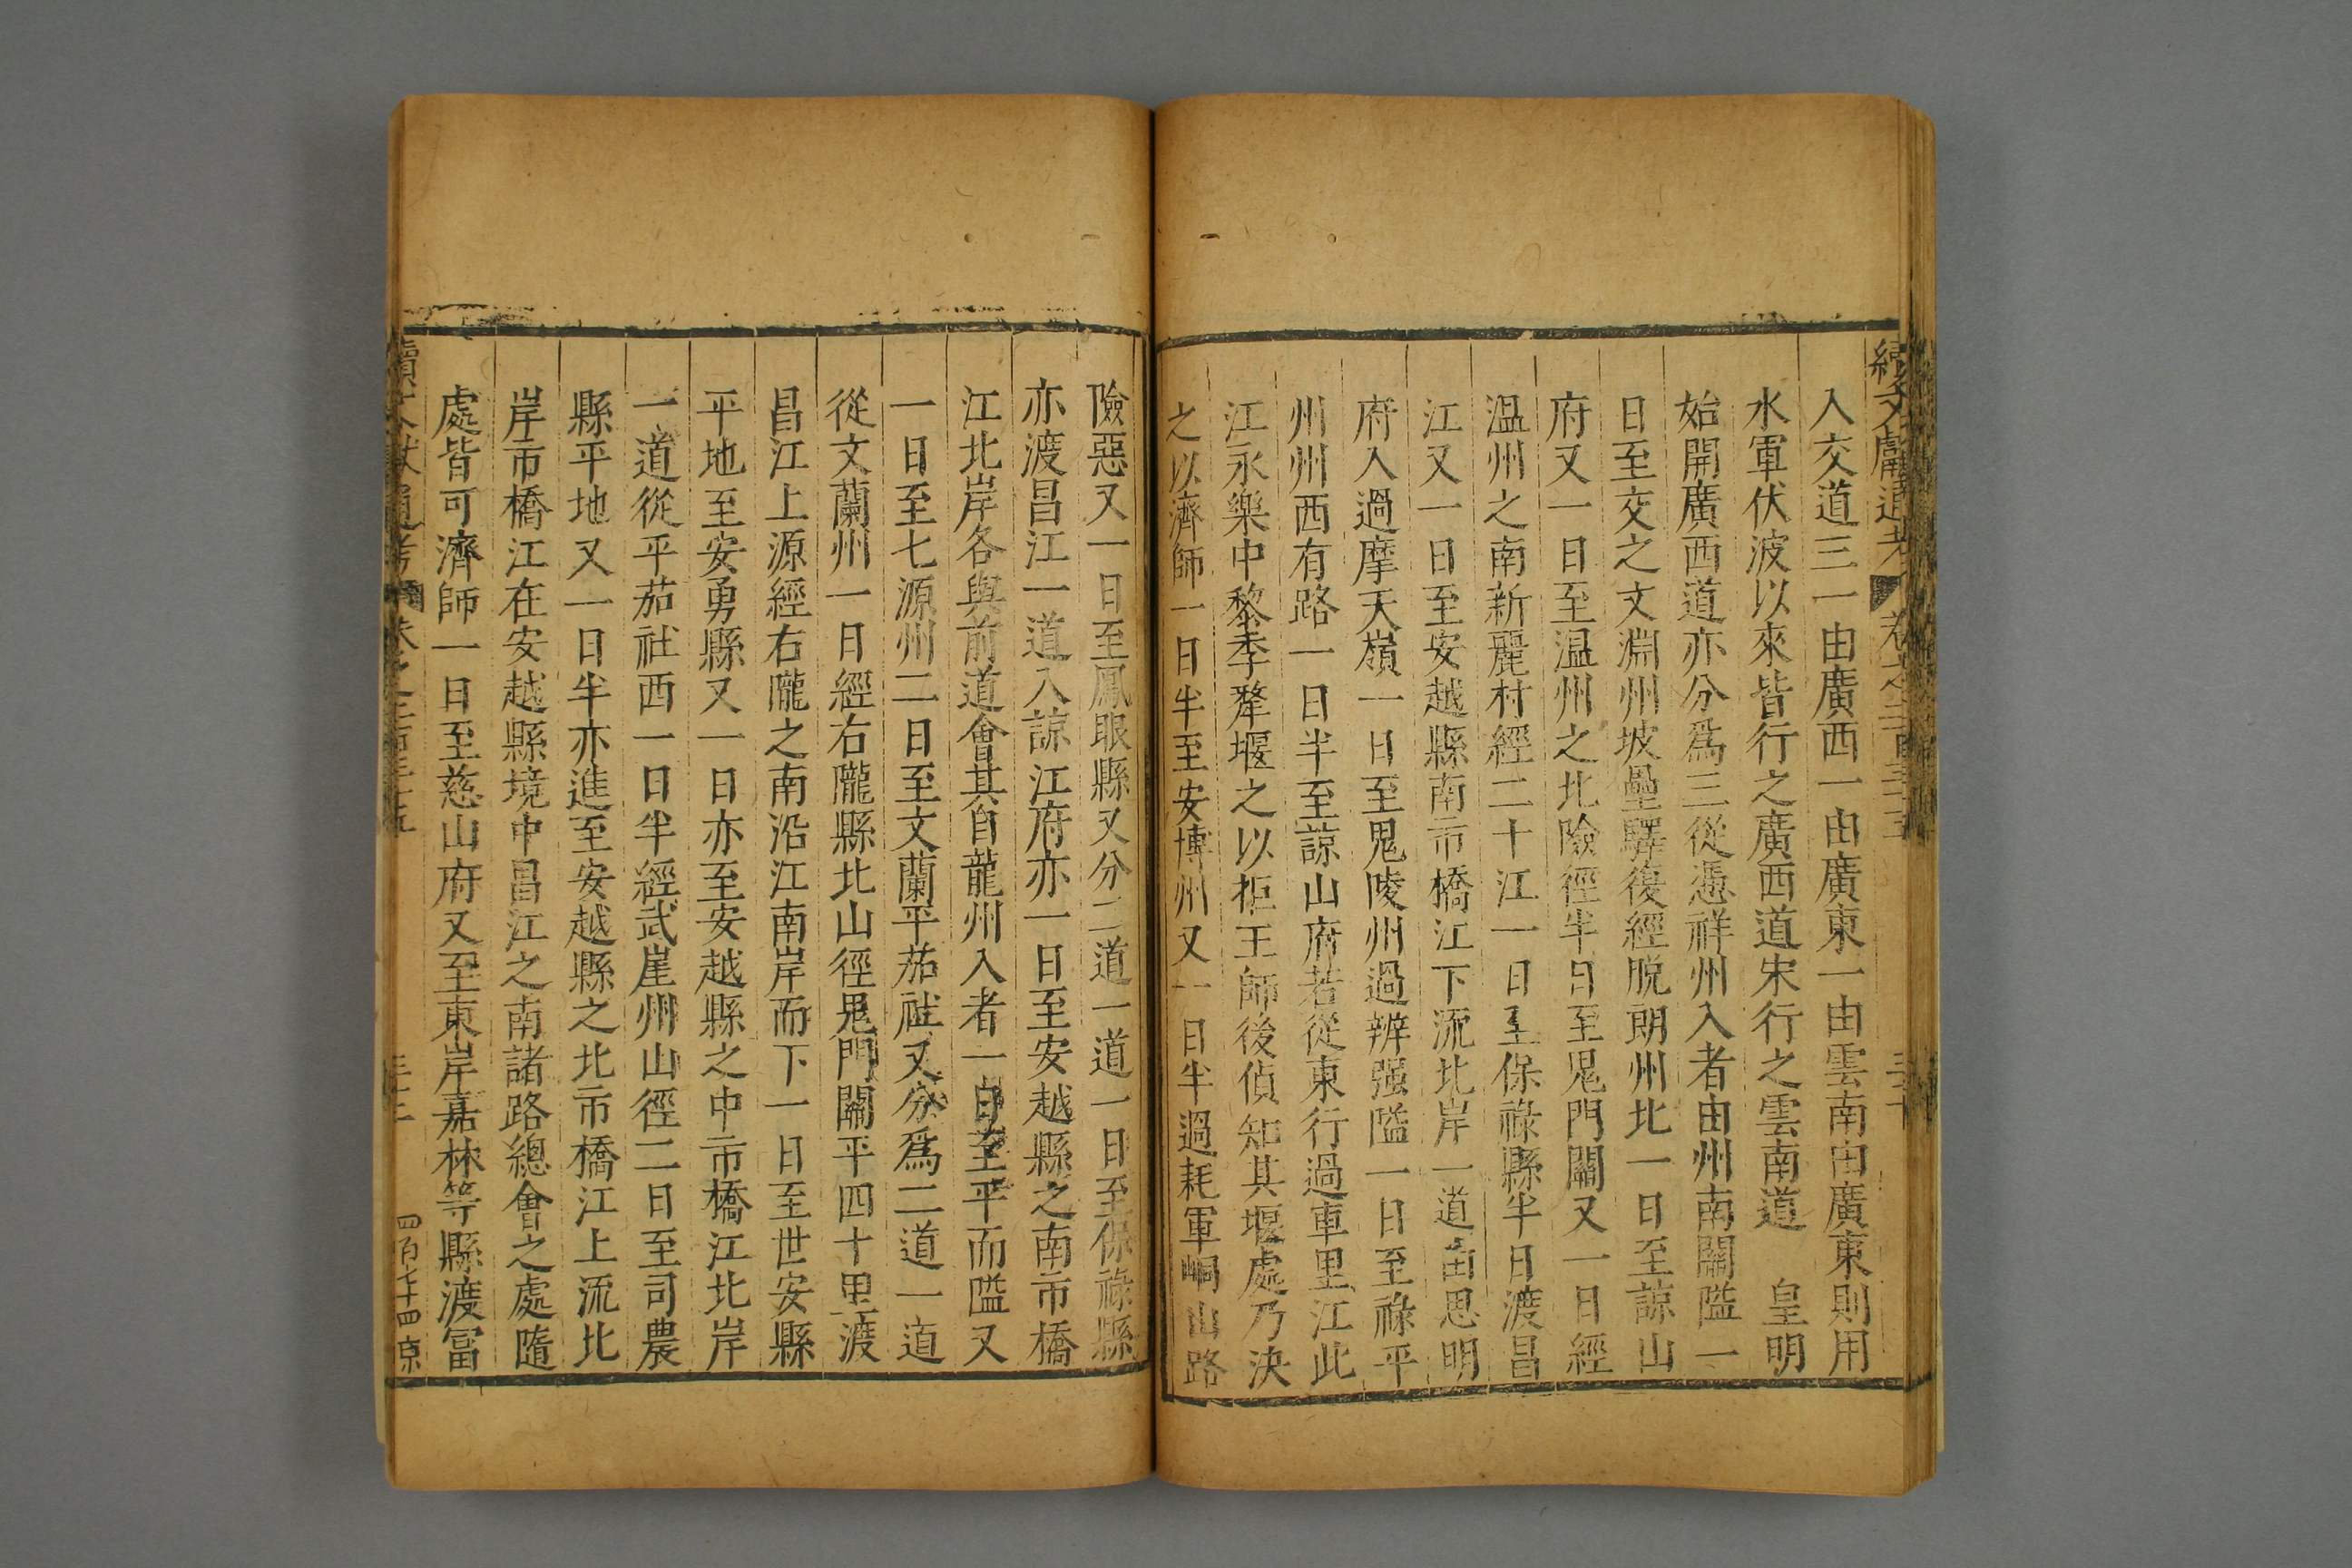 入交道三一由廣西一由廣東一由雲南由廣東則用
水軍伏波以來皆行之廣西道宋行之雲南道　皇明
始開廣西道亦分爲三從憑祥州入者由州南關隘一
日至交之文淵州坡壘驛復經脫朗州北一日至諒山
府又一日至温州之北險徑半日至鬼門關又一日經
温州之南新麗村經二十江一日至保祿縣半日渡昌
江又一日至安越縣南市橋江下流北岸一道由思明
府入過摩天嶺一日至思陵州過辨强隘一日至祿平
州州西有路一日半至諒山府若從東行過車里江此
江永樂中黎季犛堰之以拒王師後偵知其堰處乃決
之以濟師一日半至安博州又一日半過耗軍峒山路
險惡又一日至鳳眼縣又分二道一道一日至保祿縣
亦渡昌江一道入諒江府亦一日至安越縣之南市橋
江北岸各與前道會其自龍州入者一日至平而隘又
一日至七源州二日至文蘭平茄社又分爲二道一道
從文蘭州一日經右隴縣北山徑鬼門關平四十里渡
昌江上源經右隴之南沿江南岸而下一日至世安縣
平地至安勇縣又一日亦至安越縣之中市橋江北岸
一道從平茄社西一日半經武崖州山徑二日至司農
縣平地又一日半亦進至安越縣之北市橋江上流北
岸市橋江在安越縣境中昌江之南諸路總會之處隨
處皆可濟師一日至慈山府又至東岸嘉林等縣渡冨
續文獻通考
卷之二百三十五
四百七十四京